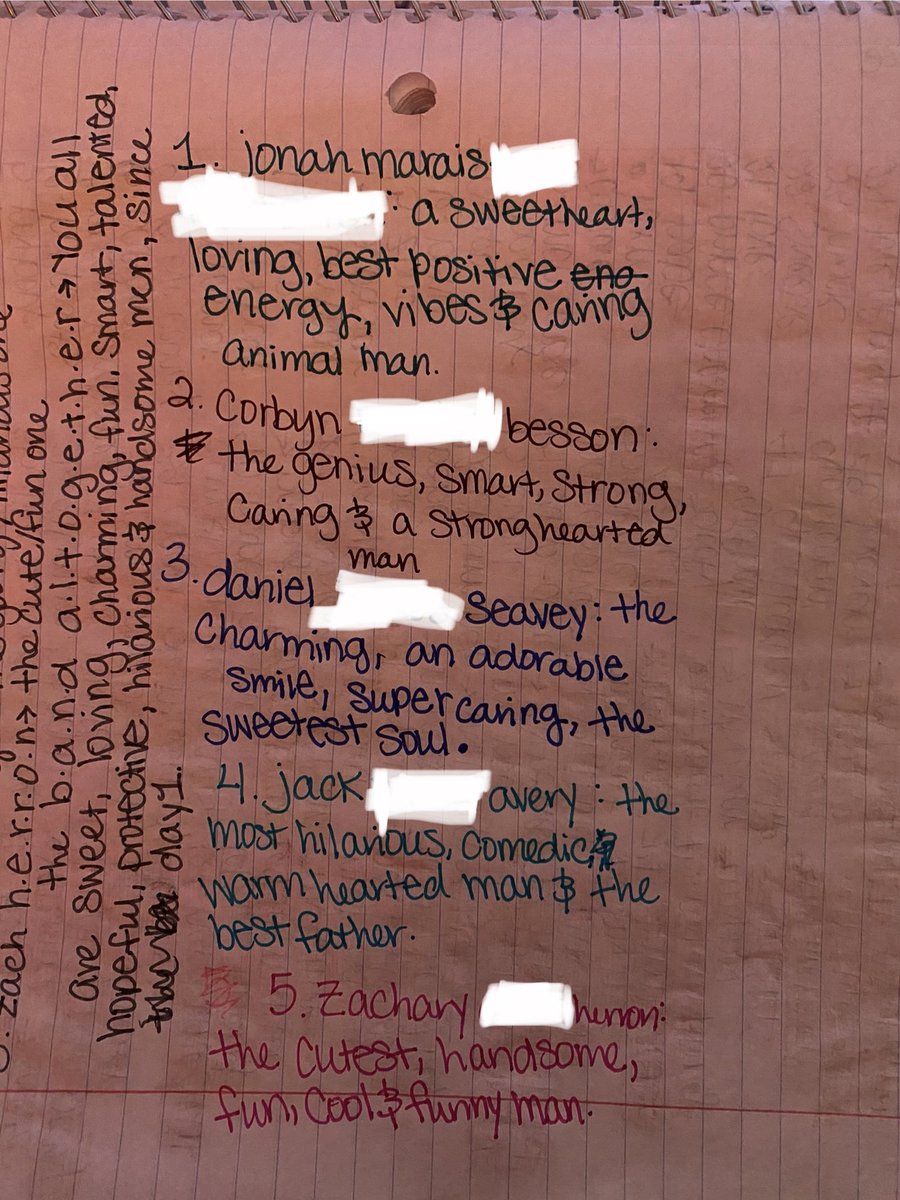 1. jonah marais
: a sweetheart,
loving, best positive eno
energy, vibes & caring
animal man.
2. Corbyn besson:
the genius, smart, strong,
Caring & a stronghearted
man
3. daniel seavey: the
Charming, an adorable
smile, super caring, the
sweetest soul.
4. jack avery: the
most hilarious, comedic, &
warmhearted man & the
best father.
5. Zachary herron:
the cutest, handsome,
fun, cool & funny man.
zach h.e.r.r.o.n → the cute/fun one
the b.a.n.d a.l.t.o.g.e.t.h.e.r → You all
are sweet, loving, charming, fun, smart, talented,
hopeful, protective, hilarious & handsome men, since
day 1.